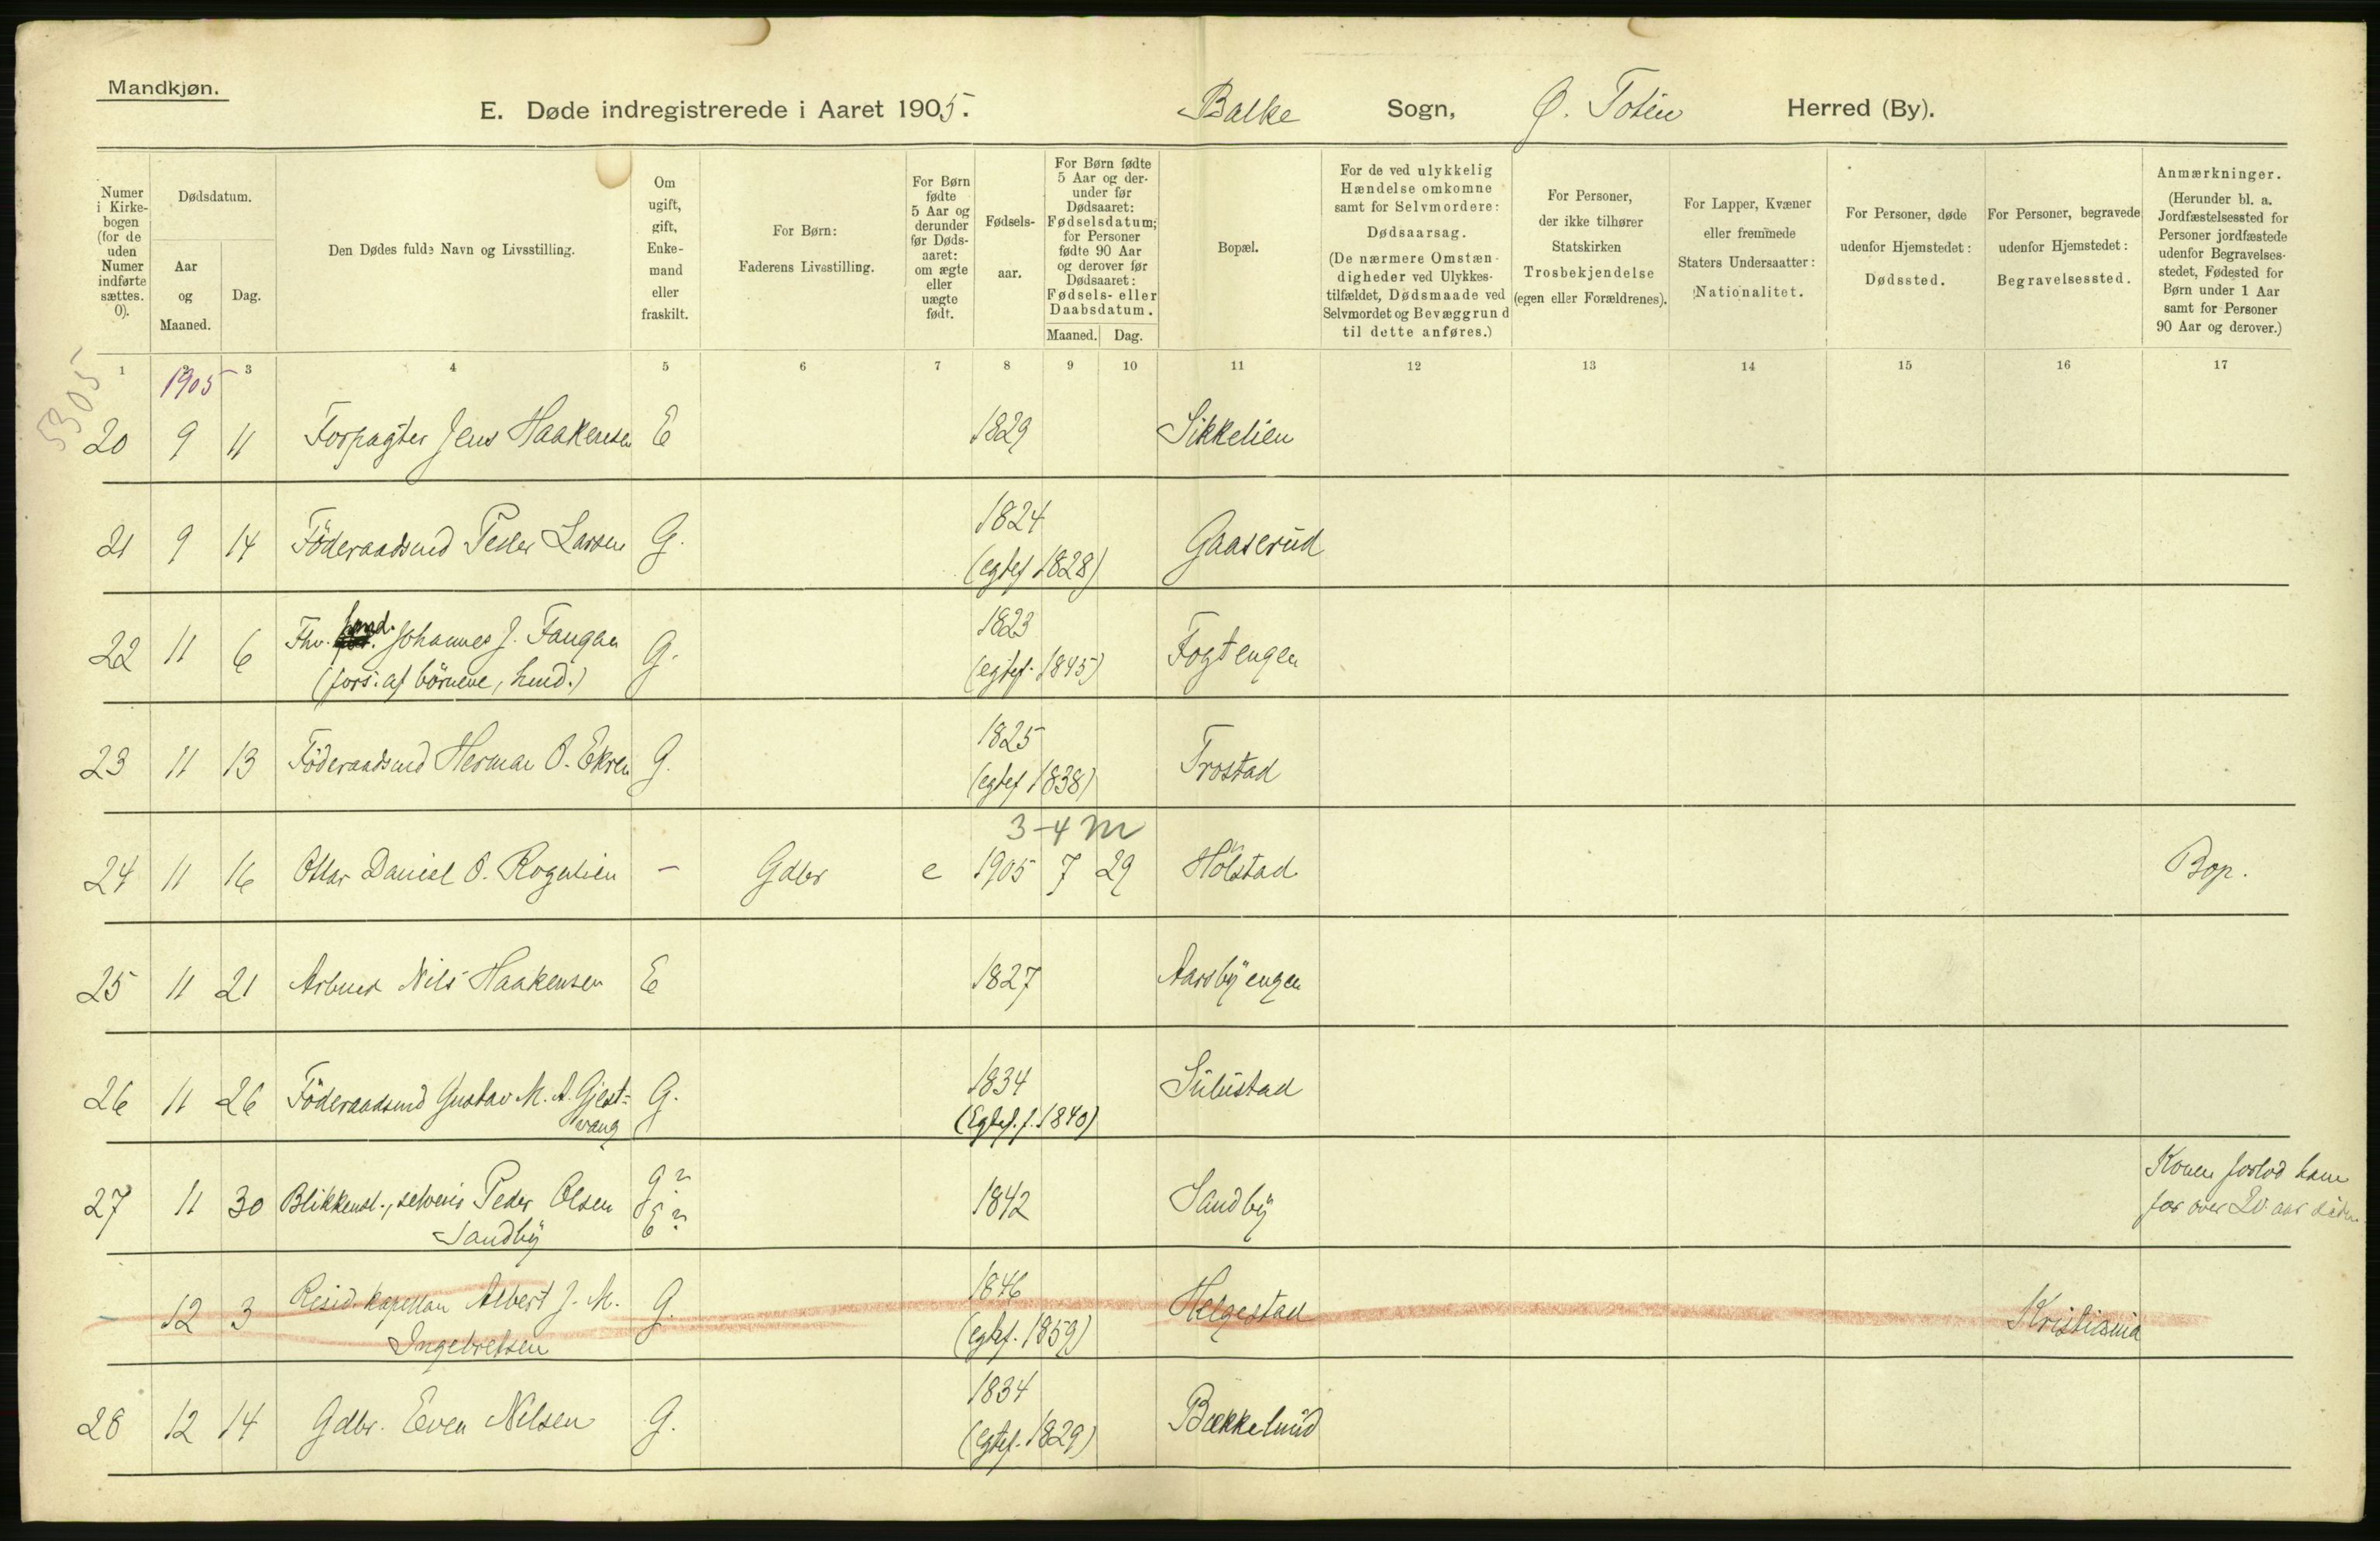 Mandkjøn.
E. Døde indregistrerede i Aaret 1905. Balke Sogn, Ø. Toten Herred (By).
Numer i Kirkebogen (for de uden Numer indførte sættes. 0).
Dødsdatum.
Aar og Maaned.
Dag.
Den Dødes fulde Navn og Livsstilling.
Om ugift, gift, Enkemand eller fraskilt.
For Børn: Faderens Livsstilling.
For Børn fødte 5 Aar og derunder før Dødsaaret: om ægte eller uægte født.
Fødselsaar.
For Børn fødte 5 Aar og derunder før Dødsaaret: Fødselsdatum; for Personer fødte 90 Aar og derover før Dødsaaret: Fødsels- eller Daabsdatum.
Maaned. Dag.
Bopæl.
For de ved ulykkelig Hændelse omkomne samt for Selvmordere: Dødsaarsag. (De nærmere Omstændigheder ved Ulykkestilfældet, Dødsmaade ved Selvmordet og Bevæggrund til dette anføres.)
For Personer, der ikke tilhører Statskirken Trosbekjendelse (egen eller Forældrenes).
For Lapper, Kvæner eller fremmede Staters Undersaatter: Nationalitet.
For Personer, døde udenfor Hjemstedet: Dødssted.
For Personer, begravede udenfor Hjemstedet: Begravelsessted.
Anmærkninger. (Herunder bl. a. Jordfæstelsessted for Personer jordfæstede udenfor Begravelsesstedet, Fødested for Børn under 1 Aar samt for Personer 90 Aar og derover.)
1 2 3 4 5 6 7 8 9 10 11 12 13 14 15 16 17
5305
1905
20 9 11 Forpagter Jens Haakensen E 1829 Sikkelien
21 9 14 Föderaadsmd Peder Larsen G. 1824 Gaaserud
(egtef 1828)
22 11 6 Fhv. hmd. Johannes J. Fangen G. 1823 Fogtengen
(fors. af börnene, hmd.) (egtef. 1845)
23 11 13 Föderaadsmd Herman O. Ekren G. 1825 Trostad
(egtef 1838)
3-4 m
24 11 16 Ottar Daniel O. Rognlien - Gdbr e 1905 7 29 Holstad Bop.
25 11 21 Arbmd Nils Haakensen E 1827 Aarsbyengen
26 11 26 Föderaadsmd Gustav M. A. Gjest- G. 1834 Sulustad
vang (Egtef. f. 1840)
27 11 30 Blikkensl., selveier Peder Olsen G? E? 1842 Sandby Konen forlod ham
Sandby for over 20 aar siden
- 12 3 Resid. kapellan Albert J. M. G. 1846 Helgestad Kristiania
Ingebretsen (egtef. 1859)
28 12 14 Gdbr. Even Nilsen G. 1834 Bækkelund
(egtef. 1829)